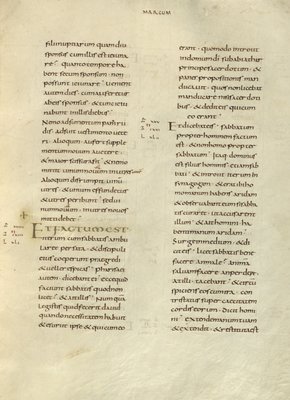 MARCUM
filii nuptiarum quamdiu
sponsus cum illis est ieiuna
re? quanto tempore ha
bent secum sponsum · non
possunt ieiunare · Uenient
autem dies · cum auferetur
ab eis sponsus · & tunc ieiu
nabunt in illis diebus ·
Nemo adsumentum panni ru
dis adsuit uestimento uete
ri · Alioquin aufert supple
mentum nouum a uetere ·
& maior scissura fit · & nemo
mittit uinum
Alioquin disrumpit uinum
utres · & uinum effundetur
& utres peribunt · sed ui
num nouum in utres nouos
mitti debet ·
ET FACTUM EST
iterum cum sabbatis ambu
laret per sata · & discipuli
eius coeperunt praegredi
& uellere spicas · Pharisaei
autem dicebant ei · ecce quid
faciunt sabbatis quod non
licet · & ait illis · Numquam
legistis quid fecerit dauid
quando necessitatem habuit
& esuriit ipse & qui cum eo
erant · quomodo introiit
in domum di sub abiathar
principe sacerdotum
& panes propositionis man
ducauit · quos non licet
manducare nisi sacerdoti
bus · & dedit eis qui cum
eo erant ·
Et dicebat eis · sabbatum
propter hominem factum
est · & non homo propter
sabbatum · Itaq· dominus
est filius hominis · etiam sab
bati · & introiit iterum in
synagogam · & erat ibi ho
mo manum habens aridam
& obseruabant eum si sabba
tis curaret · ut accusarent
illum · & ait homini ha
benti manum aridam ·
Surge in medium · & dicit
eis · licet sabbatis bene
facere an male · animam
saluam facere an perdere
at illi tacebant · & circum
spiciens eos cum ira · con
tristatus super caecitatem
cordis eorum · dicit homi
ni · extende manum tuam
& extendit · & restituta est